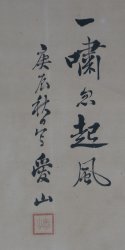 一嘯忽起風
庚辰秋日 愛山